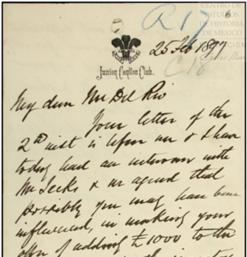 CENTRO DE
ESTUDIOS
DE HISTORIA
DE MEXICO
25 Feb 1897
Junior Carlton Club.
My dear Mr Del Rio
Your letter of the
2nd inst is before me & I have
today had an interview with
Mr Jecks & we agreed that
possibly you may have been
influenced, in making your
offer of adding £1000 to the